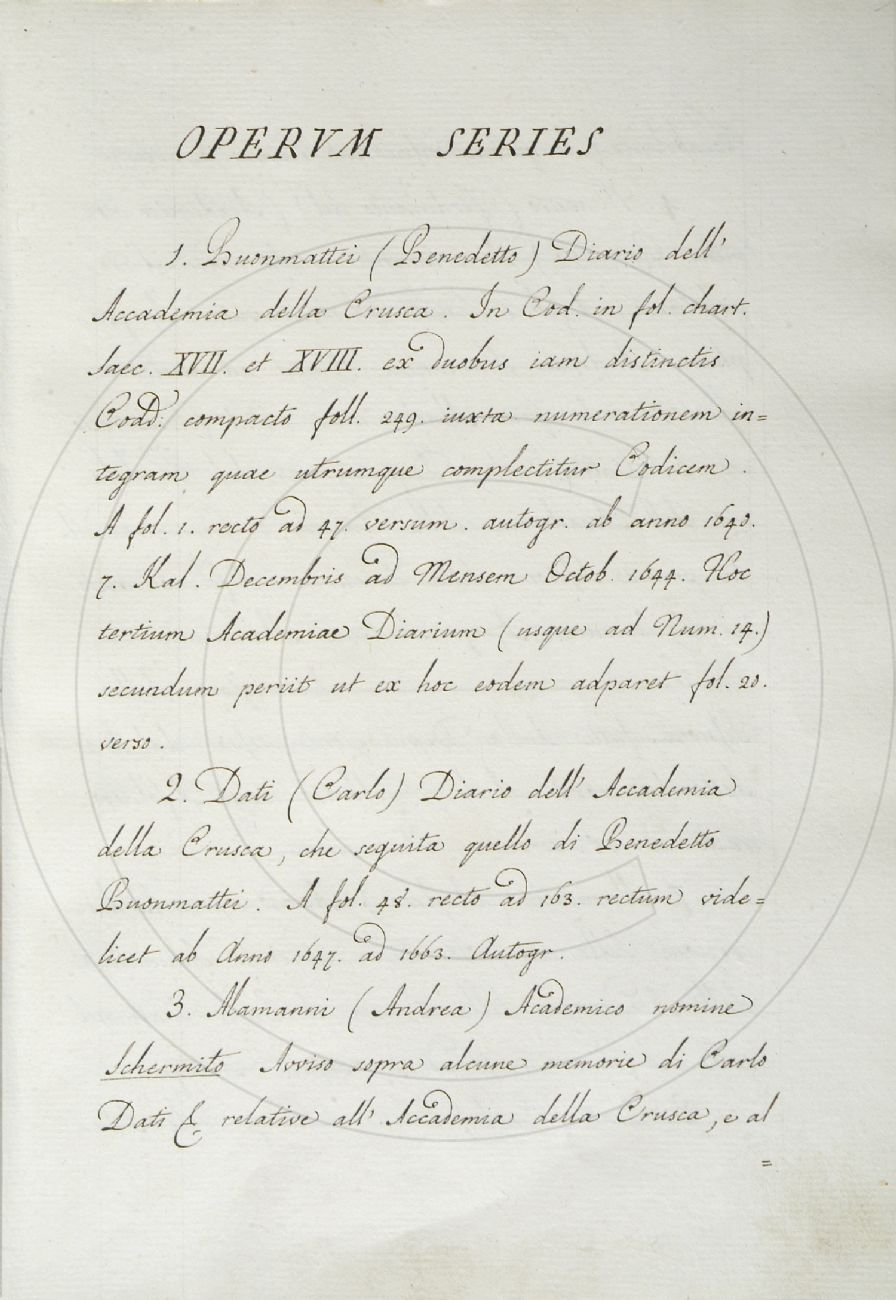 OPERVM SERIES
1. Buonmattei (Benedetto) Diario dell'
Accademia della Crusca. In Cod. in fol. chart.
Saec. XVII. et XVIII. ex duobus iam distinctis
Codd. compacto foll. 249. iuxta numerationem in=
tegram quae utrumque complectitur Codicem.
A fol. 1. recto ad 47. versum. autogr. ab anno 1640.
7. Kal. Decembris ad Mensem Octob. 1644. Hoc
tertium Academiae Diarium (usque ad Num. 14.)
secundum periit ut ex hoc eodem adparet fol. 20.
verso.
2. Dati (Carlo) Diario dell' Accademia
della Crusca, che seguita quello di Benedetto
Buonmattei. A fol. 48. recto ad 163. rectum vide=
licet ab Anno 1647. ad 1663. Autogr.
3. Alamanni (Andrea) Academico nomine
Schermito Avviso sopra alcune memorie di Carlo
Dati &. relative all' Accademia della Crusca, e al
=